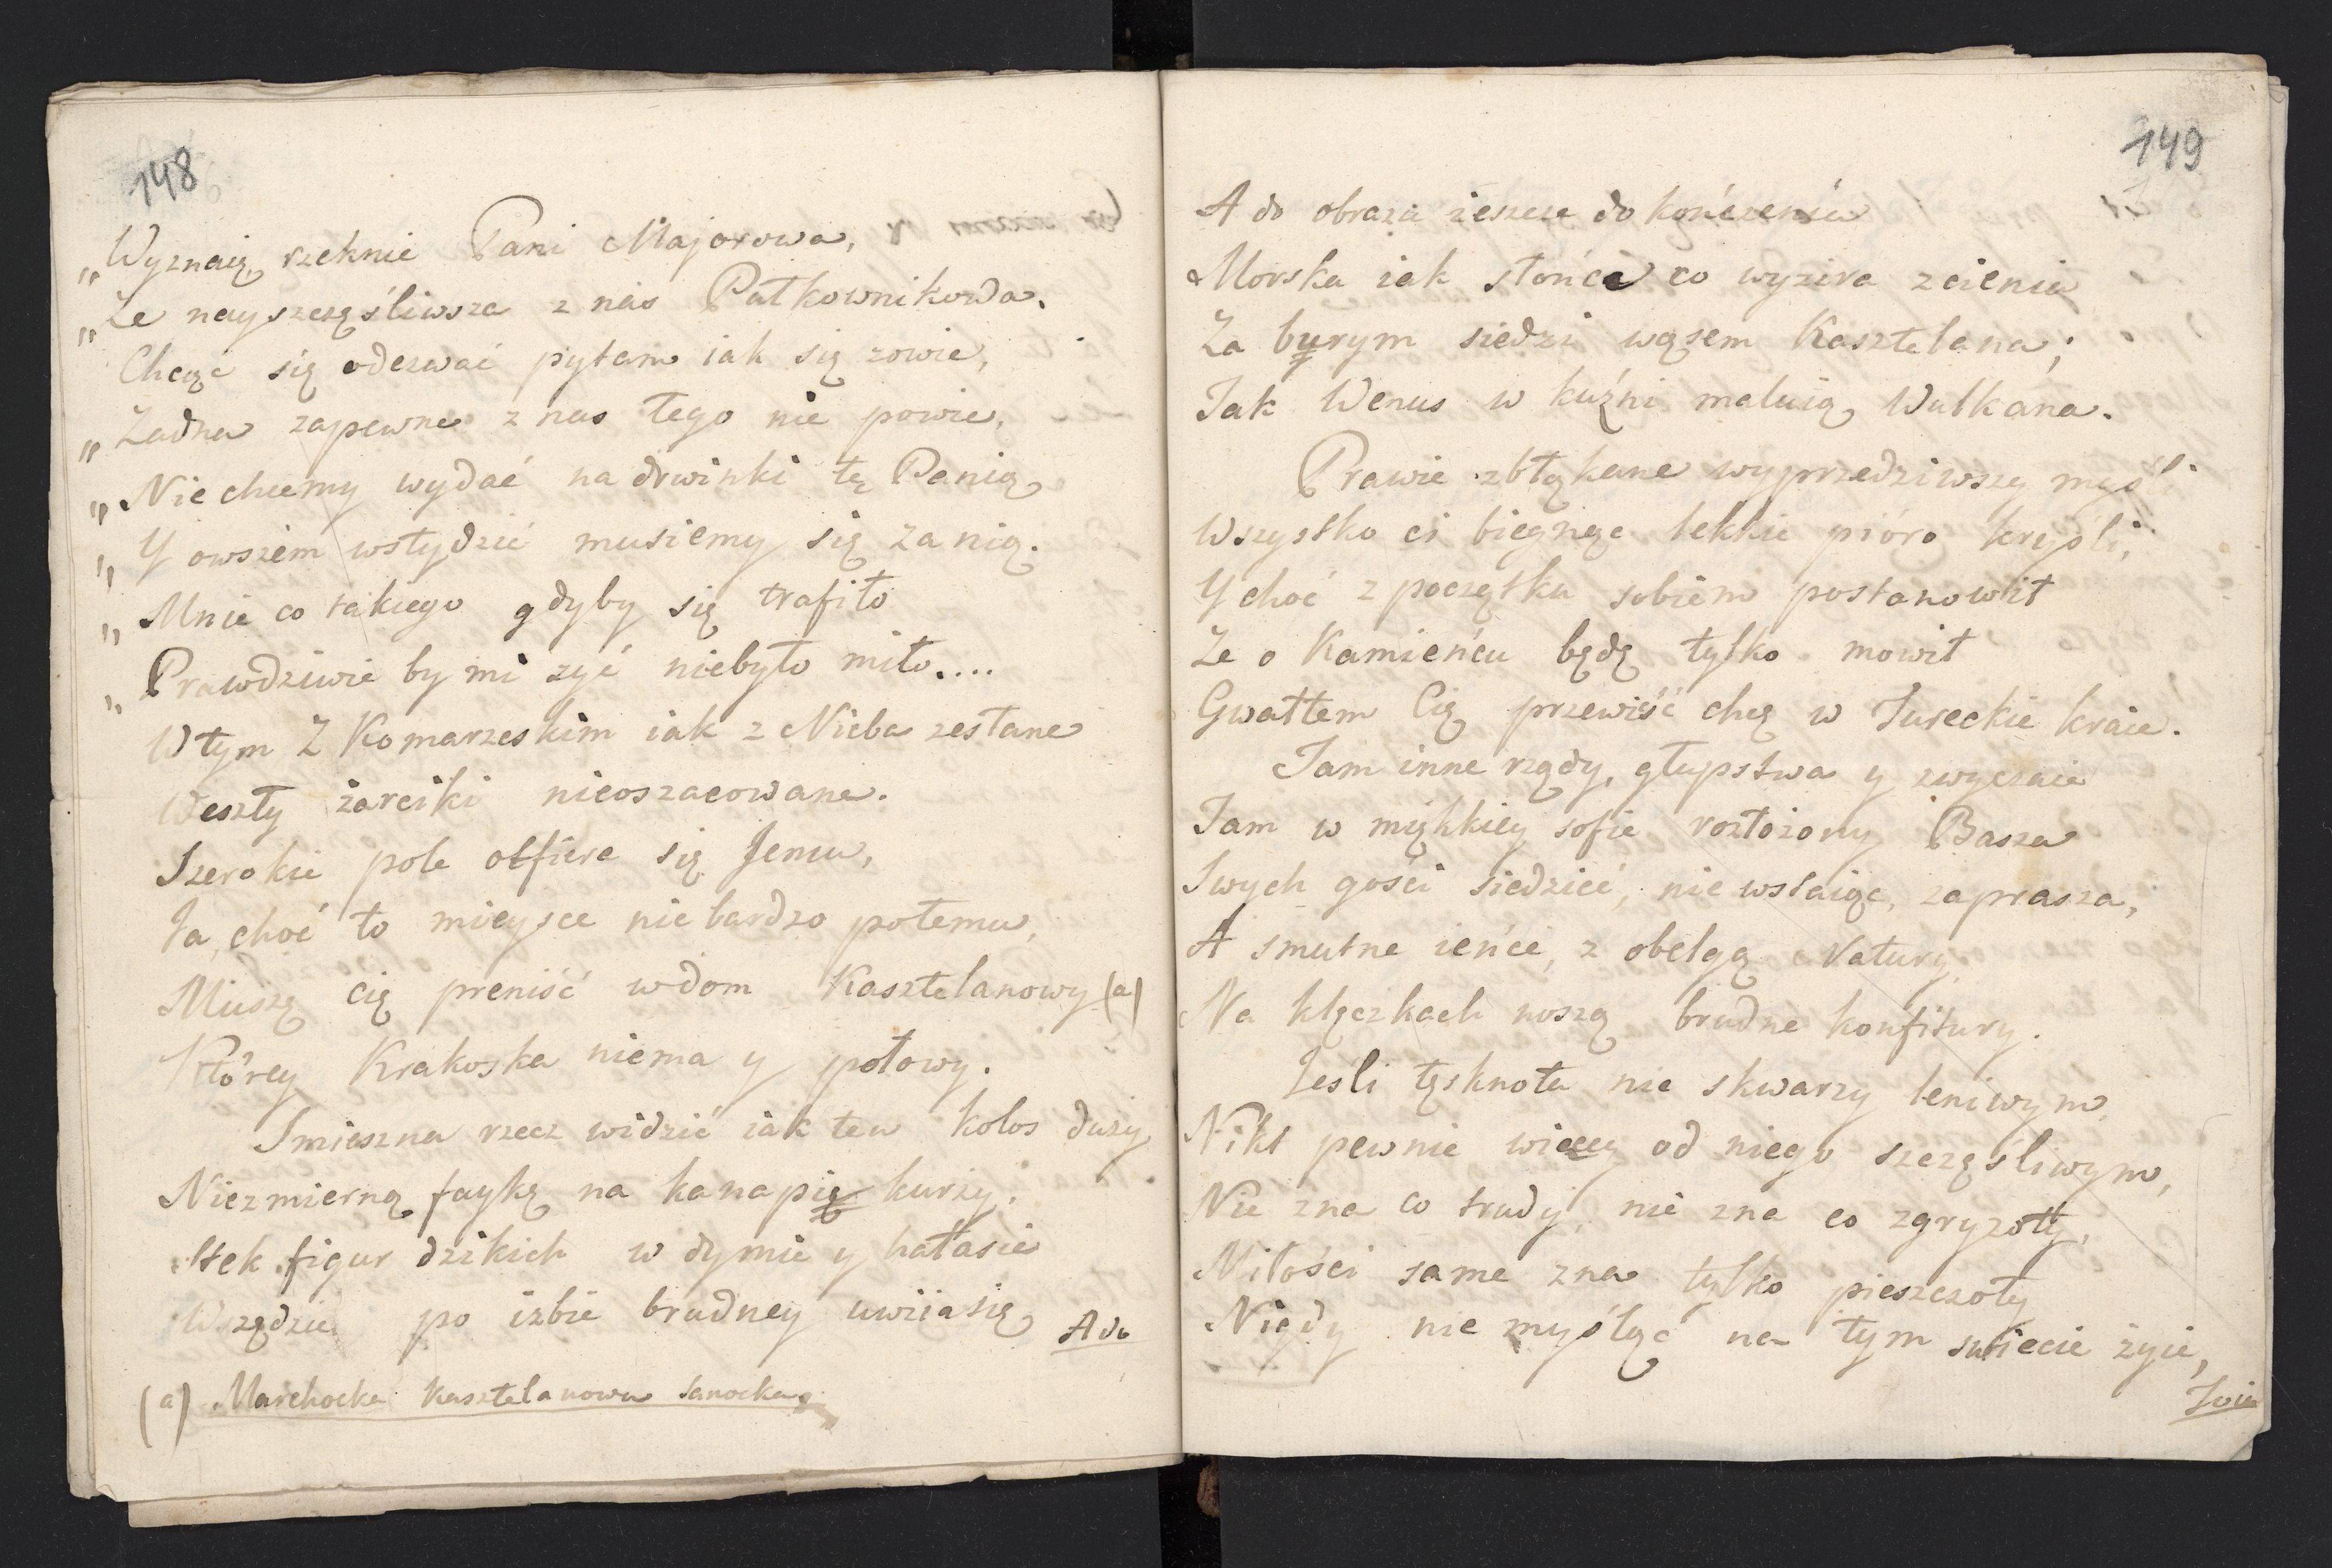 148
„Wyznaię, rzeknie Pani Majorowa,
„Ze nayszczęśliwsza z nas Pułkownikowa.
Chcąc się odezwać pytam iak się zowie,
„Zadna zapewne z nas tego nie powie,
„Nie chcemy wydać na drwinki tę Panią
„Y owszem wstydzić musiemy się za nią.
„Mnie co takiego gdyby się trafiło
„Prawdziwie by mi zyć niebyło miło....
W tym Z Komarzeskim iak z Nieba zesłane
Weszły żarciki nieoszacowane.
Szerokie pole otfiera się Jemu,
Ja, choć to mieysce nie bardzo potemu,
Muszę cię prenieść w dom Kasztelanowy (a)
Którey Krakoska niema y połowy.
Smieszna rzecz widzić iak ten kolos duży
Niezmierną faykę na kanapię kurzy.
Stek figur dzikich w dymie y hałasie
Wszędzie po izbie brudney uwiia się
A do
(a) Marchocka Kasztelanowa Sanocka
149
A do obrazu ieszcze dokończenia
Morska iak słońce co wyzira z cienia
Za burym siedzi wąsem Kasztelana;
Jak Wenus w kuźni maluią Wulkana.
Prawie zbłąkane wyprzedziwszy myśli
Wszystko ci biegnąc lekkie pióro kryśli,
Y choć z początku sobiem postanowił
Ze o Kamieńcu będę tylko mowił
Gwałtem Cię przewiść chcę w Tureckie kraie.
Tam inne rządy, głupstwa y zwyczaie
Tam w miękkiey sofie rozłożony Basza
Swych gości siedzieć, nie wstaiąc, zaprasza,
A smutne ieńce, z obelgą Natury,
Na klęczkach noszą brudne konfitury.
Jeśli tęsknota nie skwarzy leniwym,
Nikt pewnie wiecey od niego szczęśliwym,
Nie zna co trudy, nie zna co zgryzoty,
Miłości same zna tylko pieszczoty
Nigdy nie myśląc na tym swiecie żyie,